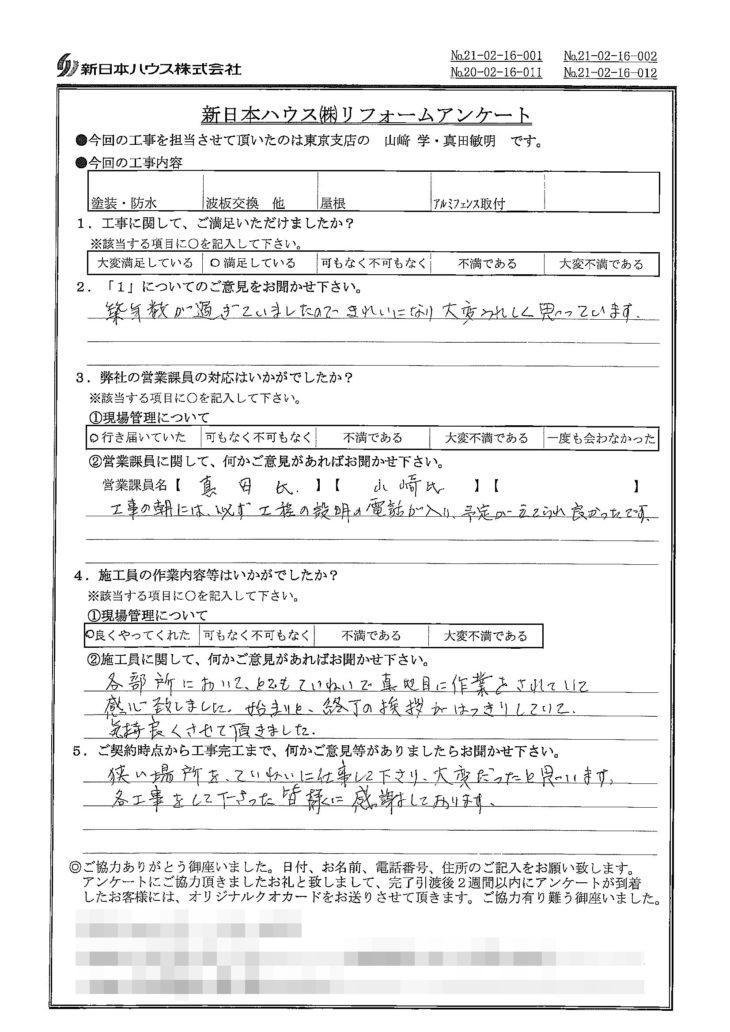 新日本ハウス株式会社
№21-02-16-001 №21-02-16-002
№20-02-16-011 №21-02-16-012
新日本ハウス㈱リフォームアンケート
●今回の工事を担当させて頂いたのは東京支店の 山﨑 学・真田敏明 です。
●今回の工事内容
塗装・防水 波板交換 他 屋根 ｱﾙﾐﾌｪﾝｽ取付
１．工事に関して、ご満足いただけましたか？
※該当する項目に○を記入して下さい。
大変満足している ○満足している 可もなく不可もなく 不満である 大変不満である
２．「１」についてのご意見をお聞かせ下さい。
築年数が過ぎていましたので きれいになり 大変うれしく思っています。
３．弊社の営業課員の対応はいかがでしたか？
※該当する項目に○を記入して下さい。
①現場管理について
○行き届いていた 可もなく不可もなく 不満である 大変不満である 一度も会わなかった
②営業課員に関して、何かご意見があればお聞かせ下さい。
営業課員名【 真田氏. 】【 山崎氏 】【 】
工事の朝には、必ず工程の説明の電話が入り、予定が立てられ良かったです。
４．施工員の作業内容等はいかがでしたか？
※該当する項目に○を記入して下さい。
①現場管理について
○良くやってくれた 可もなく不可もなく 不満である 大変不満である
②施工員に関して、何かご意見があればお聞かせ下さい。
各部所において、とてもていねいで真面目に作業をされていて
感心致しました。始まりと、終了の挨拶がはっきりしていて、
気持良くさせて頂きました.
５．ご契約時点から工事完工まで、何かご意見等がありましたらお聞かせ下さい。
狭い場所を、ていねいに仕事して下さり、大変だったと思います。
各工事をして下さった皆様に感謝しております。
◎ご協力ありがとう御座いました。日付、お名前、電話番号、住所のご記入をお願い致します。
アンケートにご協力頂きましたお礼と致しまして、完了引渡後２週間以内にアンケートが到着
したお客様には、オリジナルクオカードをお送りさせて頂きます。ご協力有り難う御座いました。